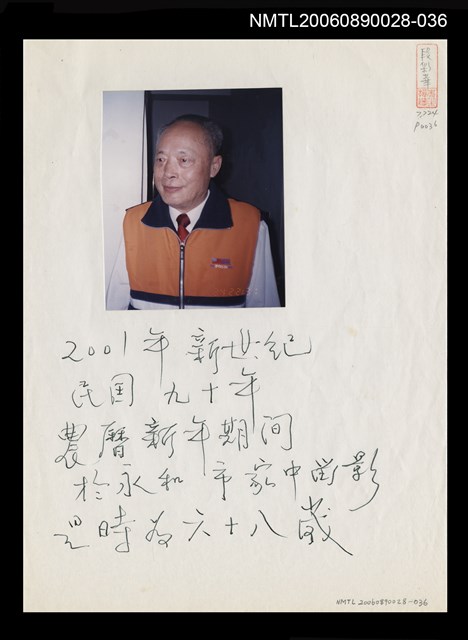 NMTL20060890028-036
段彩華
P0036
2001年 新世紀
民国 九十年
農曆新年期间
於永和市家中留影
是時為六十八歲
NMTL 20060890028-036